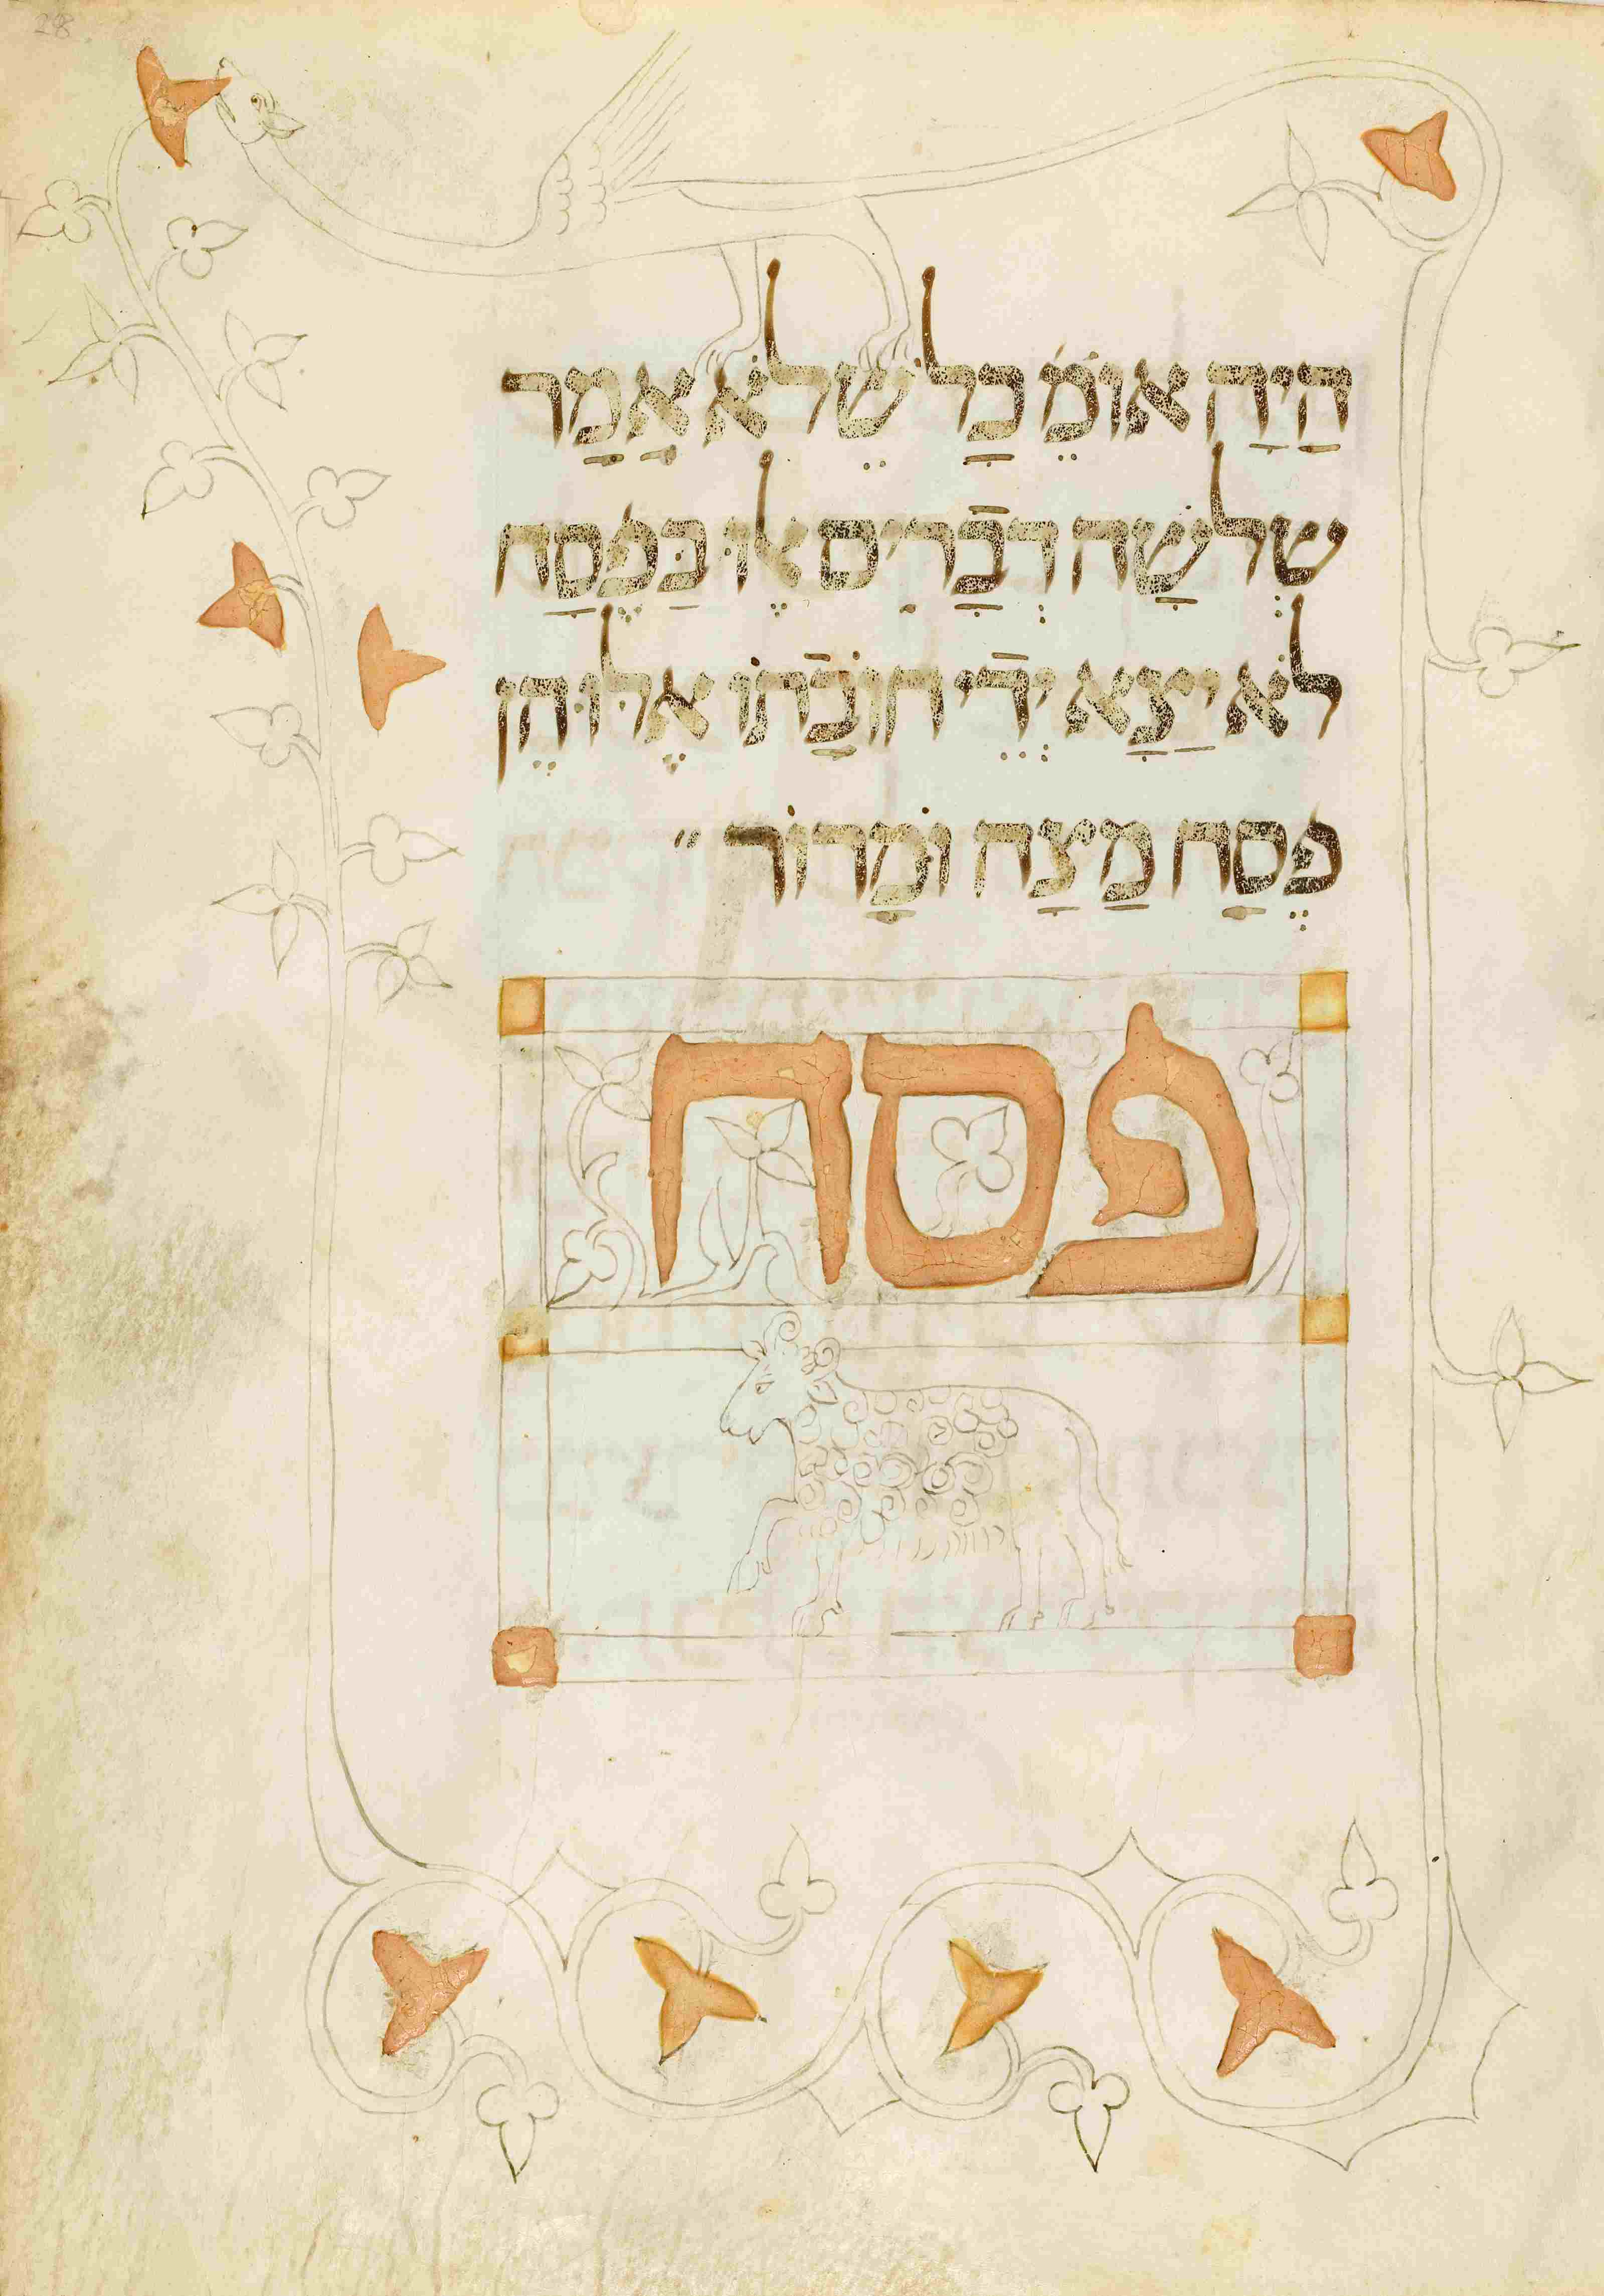 28
הָיָה אוֹמֵ כָל שֶׁלֹא אָמַר
שְׁלשָׁה דְבָרִים אֶלוּ בַּפֶּסַח
לֹא יָצָא יְדֵי חוֹבָתוֹ אֶלוּ הֵן
פֶּסַח מַצָה וּמָרוֹר ״
פסח